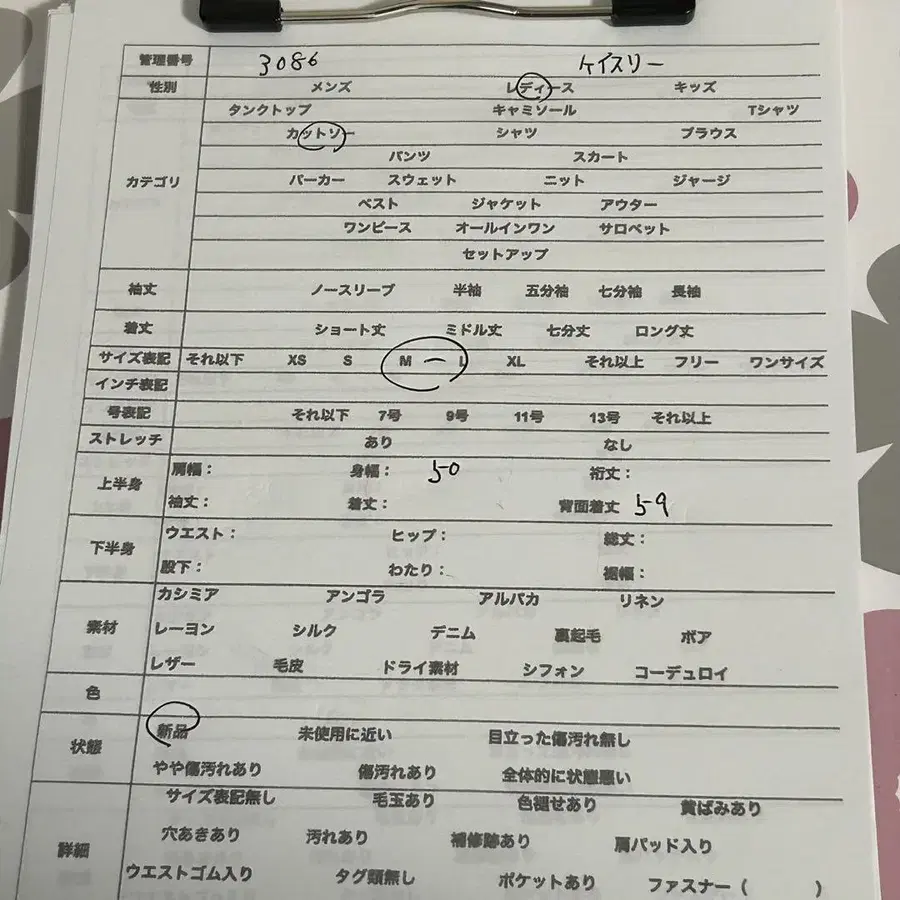 管理番号 3086 ケイスリー
性別 メンズ レディース キッズ
タンクトップ キャミソール Tシャツ
カットソー シャツ ブラウス
パンツ スカート
カテゴリ パーカー スウェット ニット ジャージ
ベスト ジャケット アウター
ワンピース オールインワン サロペット
セットアップ
袖丈 ノースリーブ 半袖 五分袖 七分袖 長袖
着丈 ショート丈 ミドル丈 七分丈 ロング丈
サイズ表記 それ以下 XS S M ー L XL それ以上 フリー ワンサイズ
インチ表記
号表記 それ以下 7号 9号 11号 13号 それ以上
ストレッチ あり なし
上半身 肩幅： 身幅： 50 裄丈：
袖丈： 着丈： 背面着丈 59
下半身 ウエスト： ヒップ： 総丈：
股下： わたり： 裾幅：
素材 カシミア アンゴラ アルパカ リネン
レーヨン シルク デニム 裏起毛 ボア
レザー 毛皮 ドライ素材 シフォン コーデュロイ
色
状態 新品 未使用に近い 目立った傷汚れ無し
やや傷汚れあり 傷汚れあり 全体的に状態悪い
詳細 サイズ表記無し 毛玉あり 色褪せあり 黄ばみあり
穴あきあり 汚れあり 補修跡あり 肩パッド入り
ウエストゴム入り タグ類無し ポケットあり ファスナー（ ）